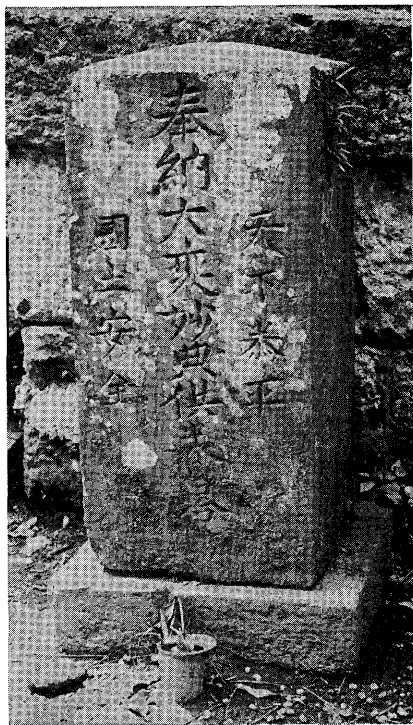 天下泰平
奉納大乗妙典供養塔
國土安全